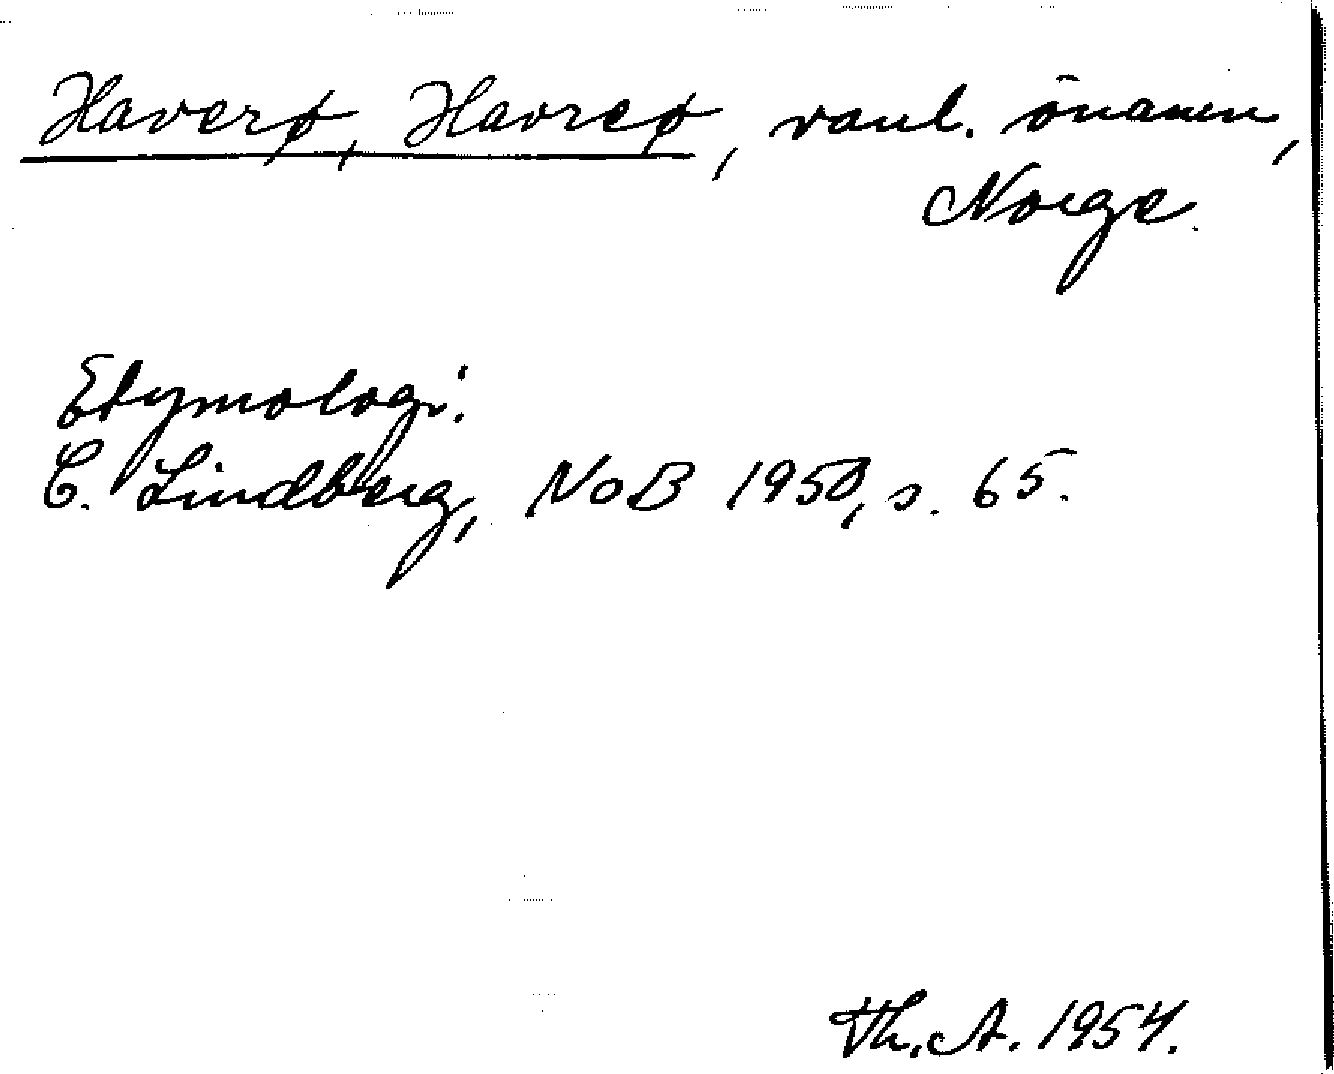 Haverø, Havreø, vanl. önamn,
Norge.
Etymologi:
C. Lindberg, NoB 1950, s. 65.
Th. A. 1954.